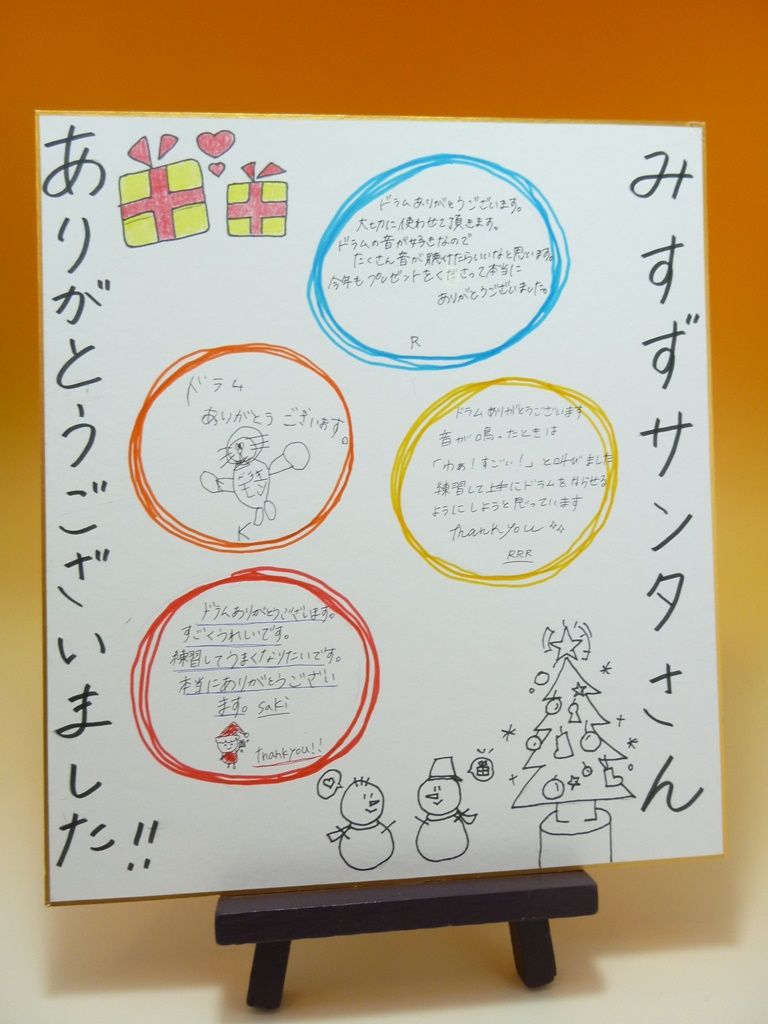 みすずサンタさん
ありがとうございました!!
ドラムありがとうございます。
大切に使わせて頂きます。
ドラムの音が好きなので
たくさん音が聴けたらいいなと思います。
今年もプレゼントをくださって本当に
ありがとうございました。
R
ドラム
ありがとうございます。
K
ドラムありがとうございます
音が鳴ったときは
「わぁ!すごい!」と叫びました
練習して上手にドラムをならせる
ようにしようと思っています
thank you
RRR
ドラムありがとうございます。
すごくうれしいです。
練習してうまくなりたいです。
本当にありがとうござい
ます。saki
thank you!!